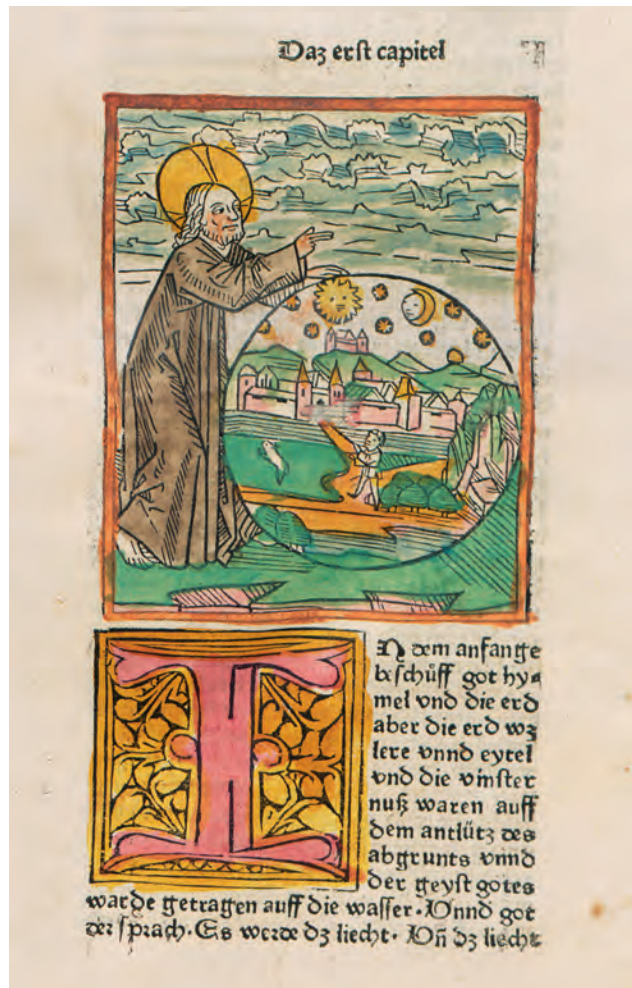 Daz erst capitel
I
N dem anfange
beschůff got hy⸗
mel vnd die erd
aber die erd wz
lere vnnd eytel
vnd die vinster
nuß waren auff
dem antlütz des
abgrunts vnnd
der geyst gotes
warde getragen auff die wasser. Vnnd got
der sprach. Es werde dz liecht. Vñ dz liecht